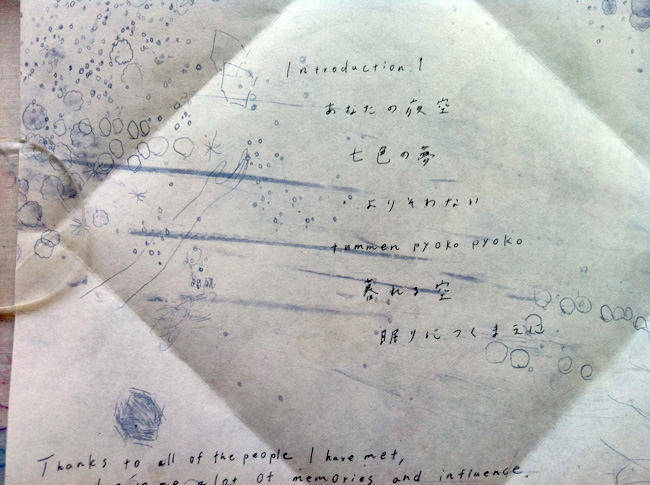 Introduction 1
あなたの夜空
七色の夢
よりそわない
tummen pyoko pyoko
暮れる空
眠りにつくまえに
Thanks to all of the people I have met,
me a lot of memories and influence.